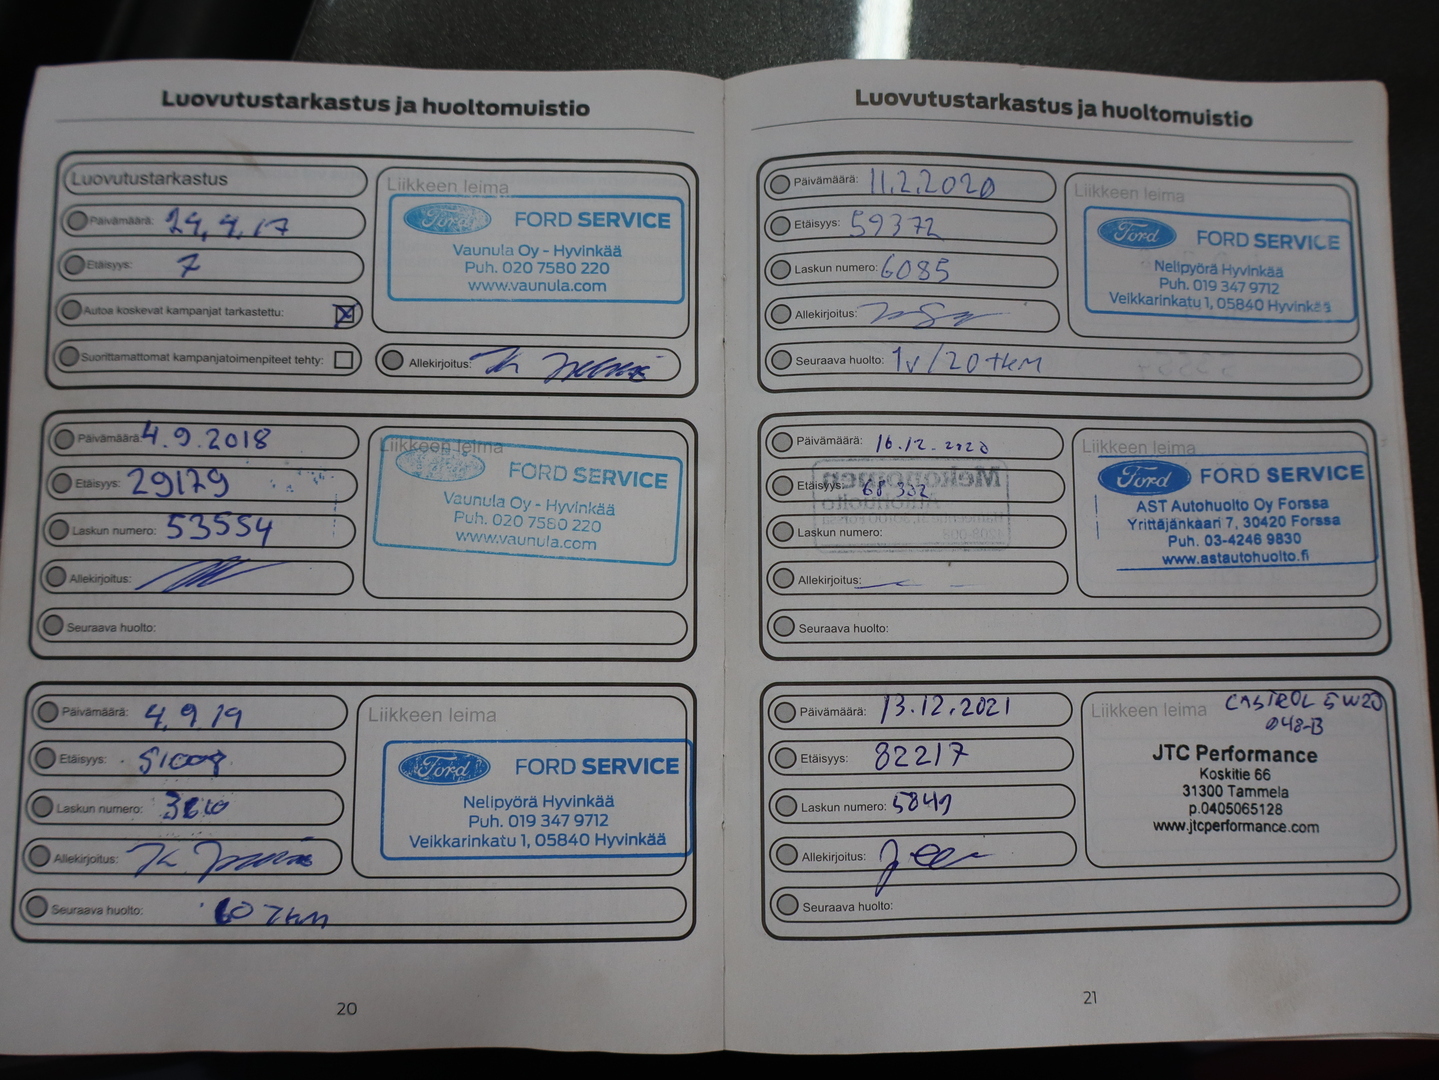 Luovutustarkastus ja huoltomuistio
Luovutustarkastus
Päivämäärä: 24.4.17
Etäisyys: 7
Autoa koskevat kampanjat tarkastettu:
Suorittamattomat kampanjatoimenpiteet tehty:
Liikkeen leima
Ford FORD SERVICE
Vaunula Oy - Hyvinkää
Puh. 020 7580 220
www.vaunula.com
Allekirjoitus:
Päivämäärä: 4.9.2018
Etäisyys: 29179
Laskun numero: 53554
Allekirjoitus:
Seuraava huolto:
Liikkeen leima
FORD SERVICE
Vaunula Oy - Hyvinkää
Puh. 020 7580 220
www.vaunula.com
Päivämäärä: 4.9.19
Etäisyys:
Laskun numero:
Allekirjoitus:
Seuraava huolto: 60 tkm
Liikkeen leima
Ford FORD SERVICE
Nelipyörä Hyvinkää
Puh. 019 347 9712
Veikkarinkatu 1, 05840 Hyvinkää
20
Luovutustarkastus ja huoltomuistio
Päivämäärä: 11.2.2020
Etäisyys: 59372
Laskun numero: 6085
Allekirjoitus:
Seuraava huolto: 1v/20 tkm
Liikkeen leima
Ford FORD SERVICE
Nelipyörä Hyvinkää
Puh. 019 347 9712
Veikkarinkatu 1, 05840 Hyvinkää
Päivämäärä: 16.12.2020
Etäisyys: 68332
Laskun numero:
Allekirjoitus:
Seuraava huolto:
Liikkeen leima
Ford FORD SERVICE
AST Autohuolto Oy Forssa
Yrittäjänkaari 7, 30420 Forssa
Puh. 03-4246 9830
www.astautohuolto.fi
Päivämäärä: 13.12.2021
Etäisyys: 82217
Laskun numero: 5849
Allekirjoitus:
Seuraava huolto:
Liikkeen leima CASTROL 5W20
948-B
JTC Performance
Koskitie 66
31300 Tammela
p.0405065128
www.jtcperformance.com
21